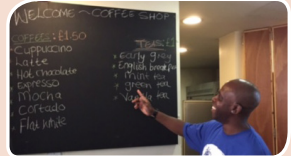 WELCOME ~ COFFEE SHOP
COFFEES: £1.50
Cappuccino
Latte
Hot chocolate
Espresso
Mocha
Cortado
Flat White
Early grey
English breakfast
mint tea
green tea
tea